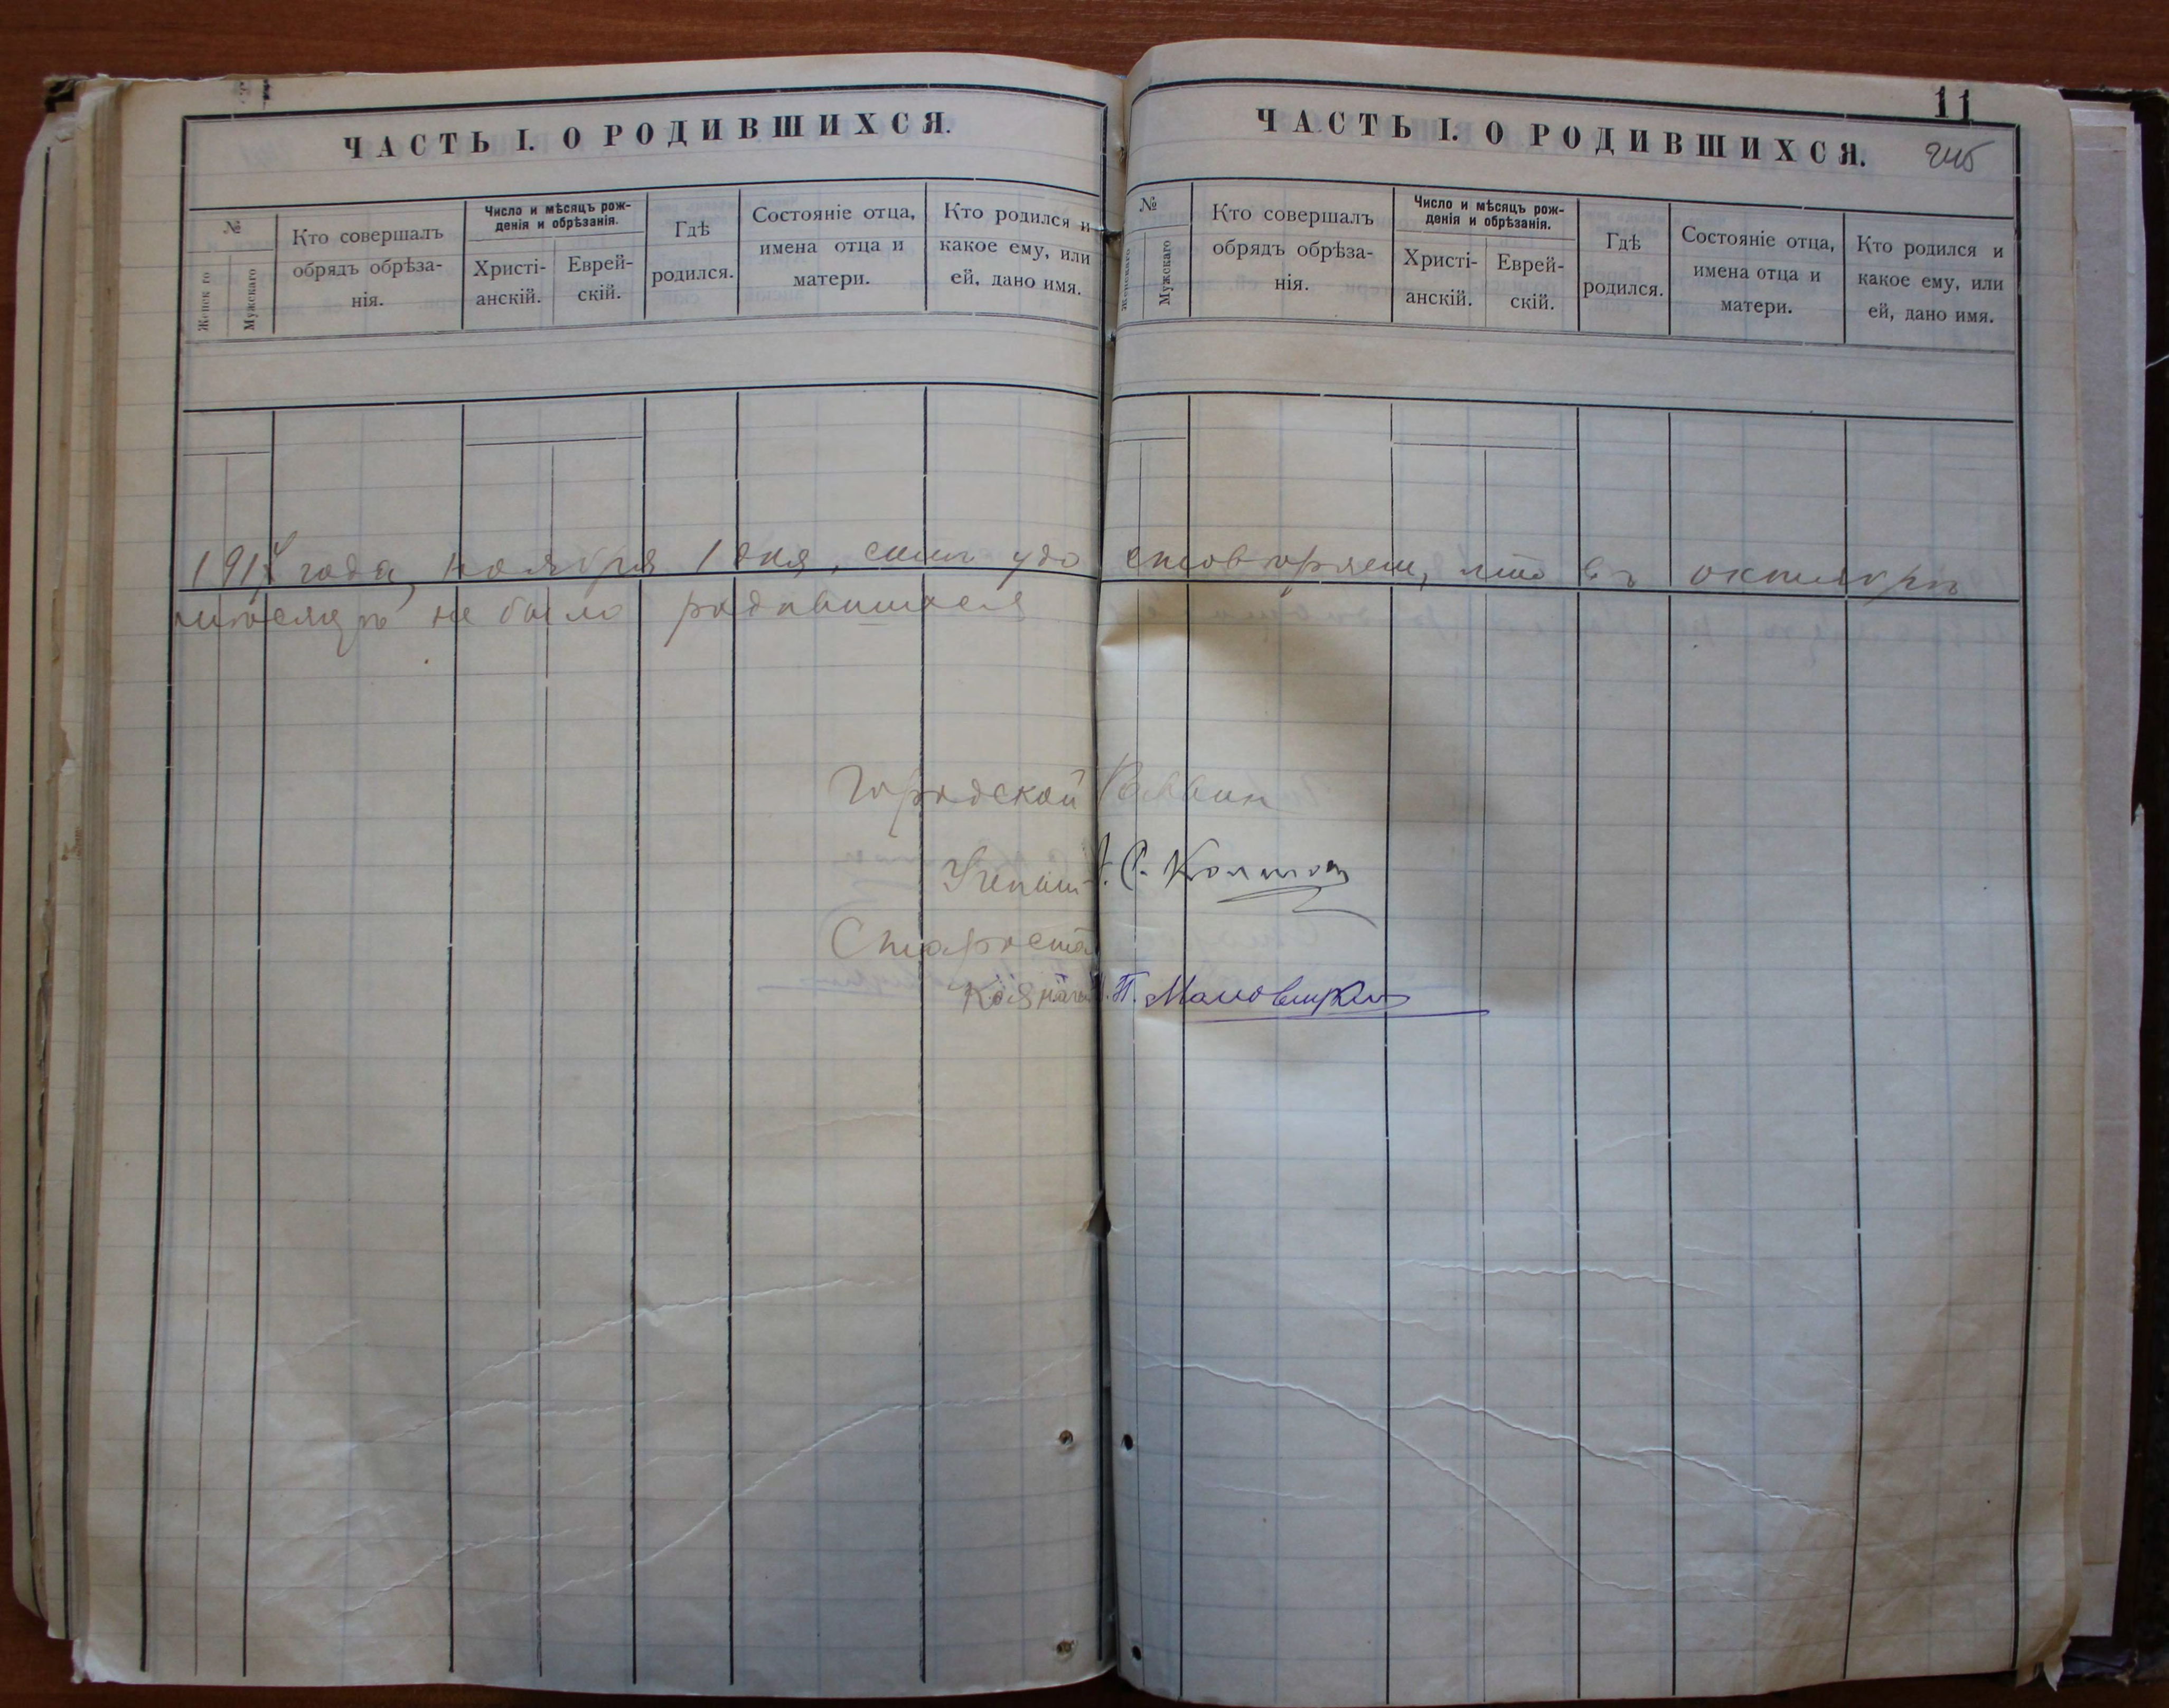 ЧАСТЬ I. О РОДИВШИХСЯ.
№
Женск го
Мужскаго
Кто совершалъ
обрядъ обрѣза-
нія.
Число и мѣсяцъ рож-
денія и обрѣзанія.
Христі-
анскій.
Еврей-
скій.
Гдѣ
родился.
Состояніе отца,
имена отца и
матери.
Кто родился и
какое ему, или
ей, дано имя.
11
ЧАСТЬ I. О РОДИВШИХСЯ.
245
№
Женскаго
Мужскаго
Кто совершалъ
обрядъ обрѣза-
нія.
Число и мѣсяцъ рож-
денія и обрѣзанія.
Христі-
анскій.
Еврей-
скій.
Гдѣ
родился.
Состояніе отца,
имена отца и
матери.
Кто родился и
какое ему, или
ей, дано имя.
года, ноября 1 дня, симъ удостовѣряемъ, что въ октябрѣ
мѣсяцѣ не было родившихся
Городской Раввин
С.
Староста
Казначей П.